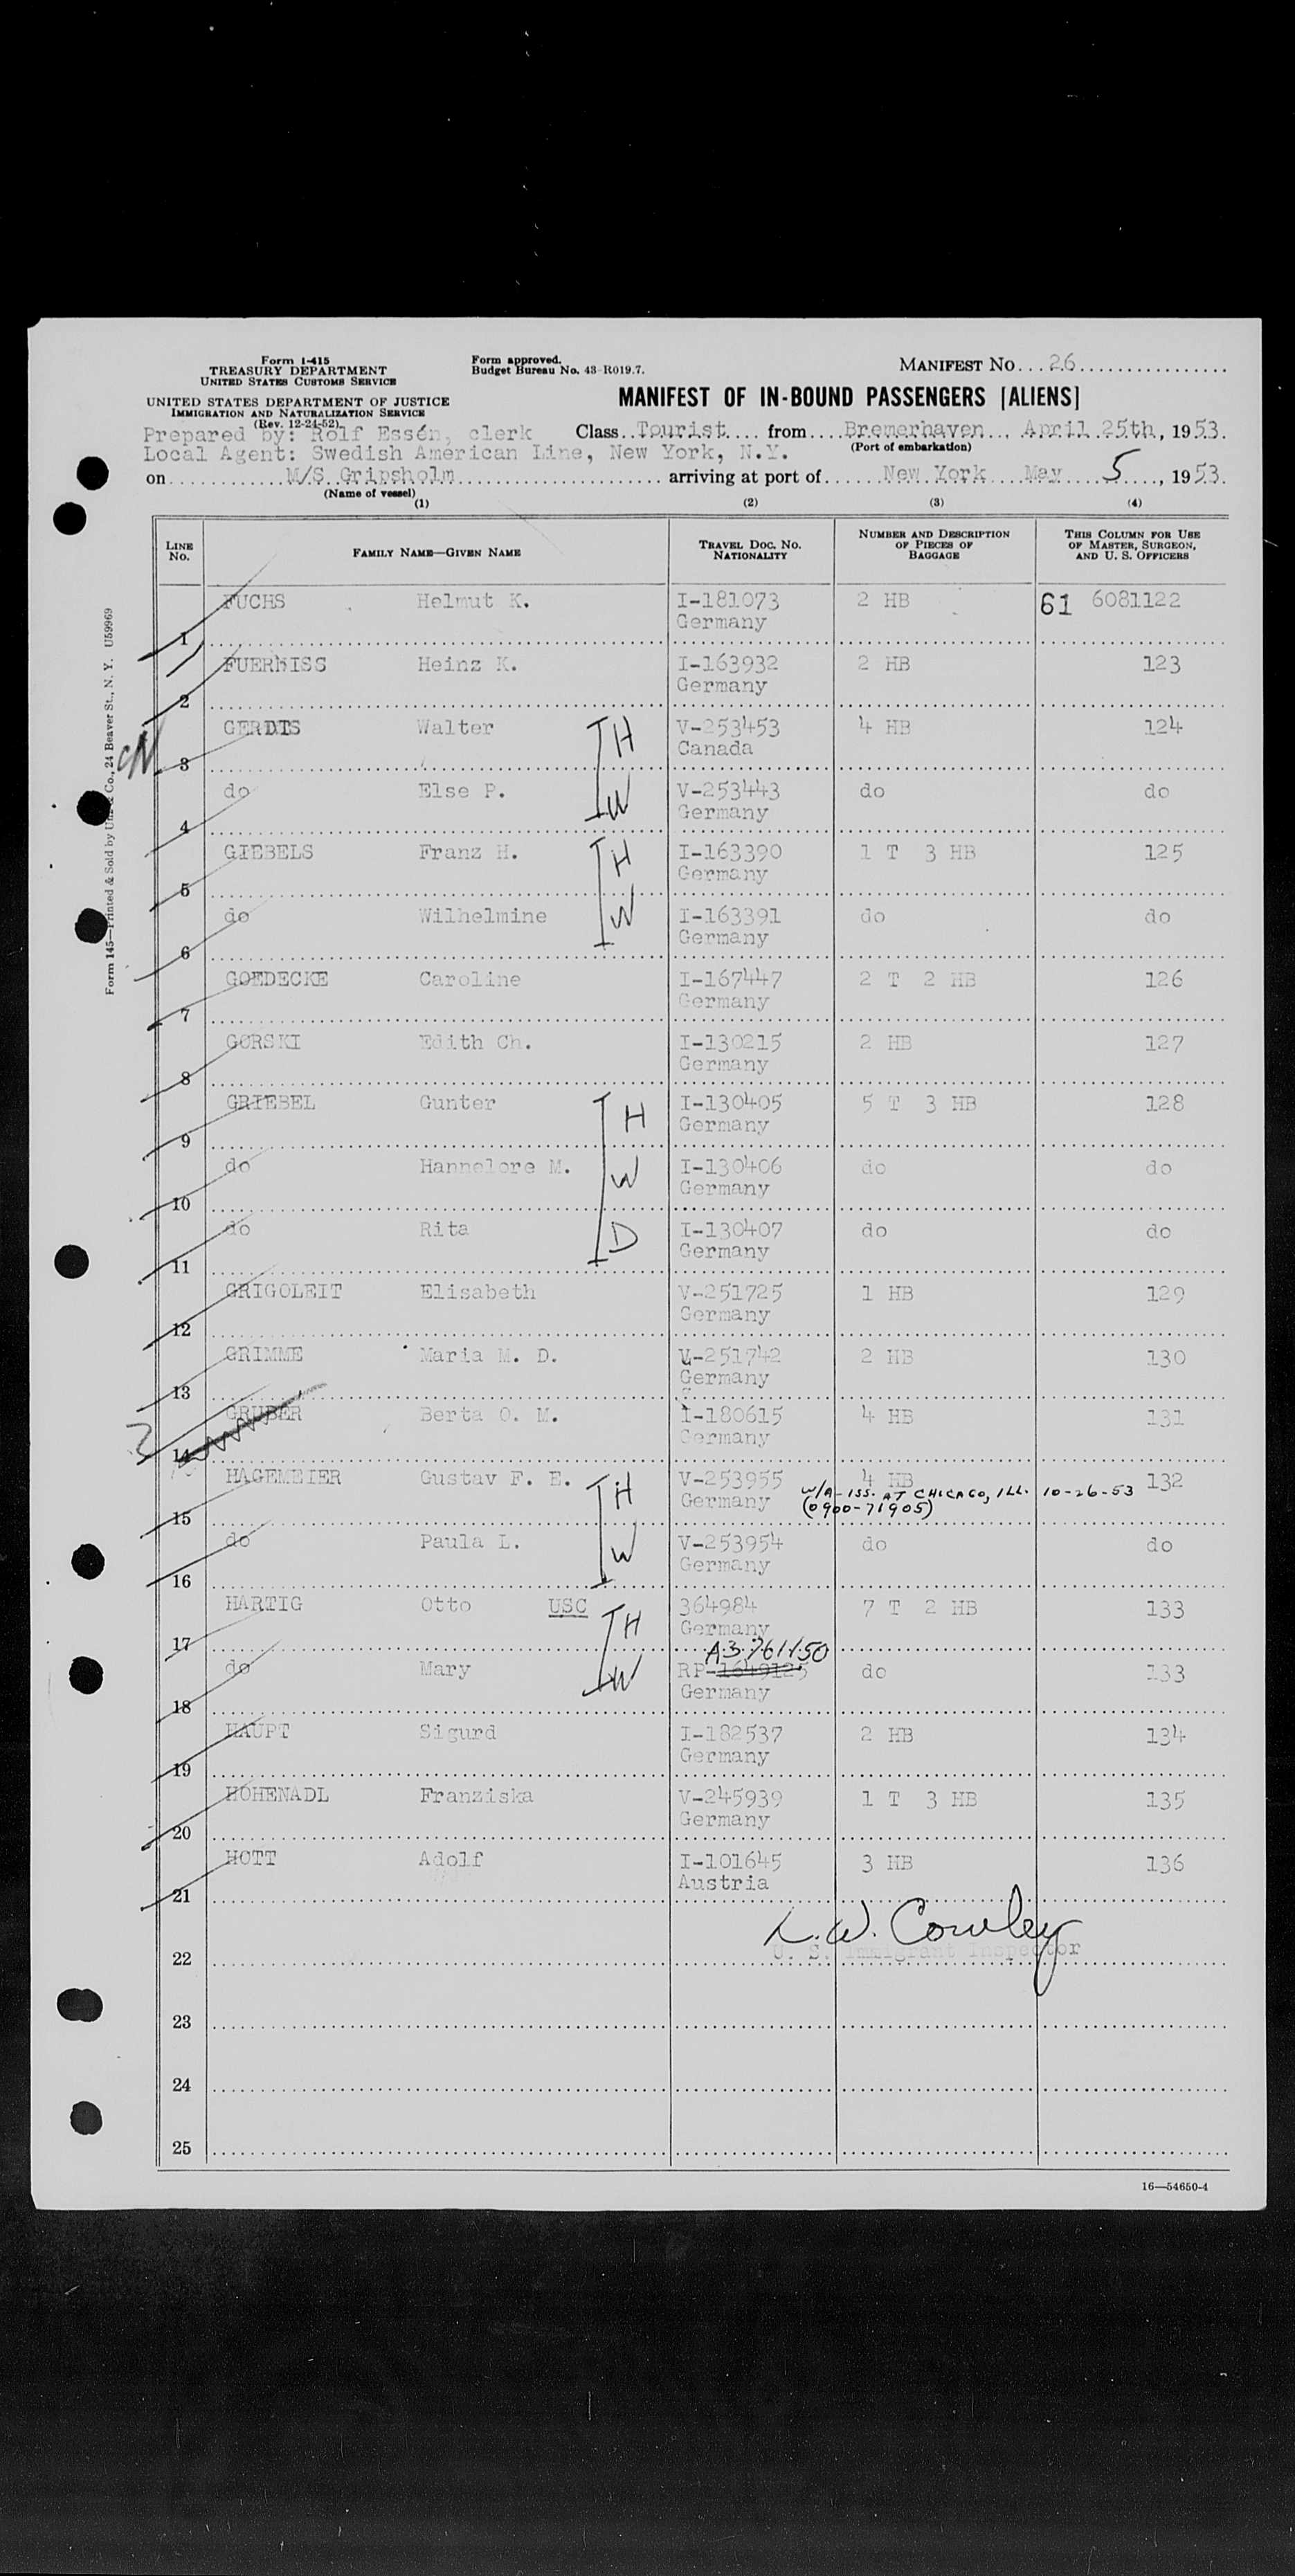 Form I-415
TREASURY DEPARTMENT
UNITED STATES CUSTOMS SERVICE
UNITED STATES DEPARTMENT OF JUSTICE
IMMIGRATION AND NATURALIZATION SERVICE
(Rev. 12-24-52)
Form approved.
Budget Bureau No. 43-R019.7.
MANIFEST NO. 26
MANIFEST OF IN-BOUND PASSENGERS [ALIENS]
Prepared by: Rolf Essén, clerk Class Tourist from Bremerhaven, April 25th, 1953.
Local Agent: Swedish American Line, New York, N.Y. (Port of embarkation)
on M/S Gripsholm arriving at port of New York May 5, 1953.
(Name of vessel)
(1) (2) (3) (4)
LINE NO. FAMILY NAME—GIVEN NAME TRAVEL DOC. NO. NATIONALITY NUMBER AND DESCRIPTION OF PIECES OF BAGGAGE THIS COLUMN FOR USE OF MASTER, SURGEON, AND U. S. OFFICERS
FUCHS Helmut K. I-181073 2 HB 61 6081122
1 Germany
FUERNISS Heinz K. I-163932 2 HB 123
2 Germany
GERDTS Walter H V-253453 4 HB 124
3 Canada
do Else P. W V-253443 do do
4 Germany
GIEBELS Franz H. H I-163390 1 T 3 HB 125
5 Germany
do Wilhelmine W I-163391 do do
6 Germany
GOEDECKE Caroline I-167447 2 T 2 HB 126
7 Germany
GORSKI Edith Ch. I-130215 2 HB 127
8 Germany
GRIEBEL Gunter H I-130405 5 T 3 HB 128
9 Germany
do Hannelore M. W I-130406 do do
10 Germany
do Rita D I-130407 do do
11 Germany
GRIGOLEIT Elisabeth V-251725 1 HB 129
12 Germany
GRIMME Maria M. D. V-251742 2 HB 130
13 Germany
GRUBER Berta O. M. I-180615 4 HB 131
3 14 Germany
HAGEMEIER Gustav F. E. H V-253955 4 HB 132
W/A-ISS. AT CHICAGO, ILL. 10-26-53
15 Germany (0900-71905)
do Paula L. W V-253954 do do
16 Germany
HARTIG Otto USC H 364984 7 T 2 HB 133
17 Germany
A3 761150
do Mary W RP-1649125 do 133
18 Germany
HAUPT Sigurd I-182537 2 HB 134
19 Germany
HOHENADL Franziska V-245939 1 T 3 HB 135
20 Germany
HOTT Adolf I-101645 3 HB 136
21 Austria
L. W. Cowley
22 U. S. Immigrant Inspector
23
24
25
16—54650-4